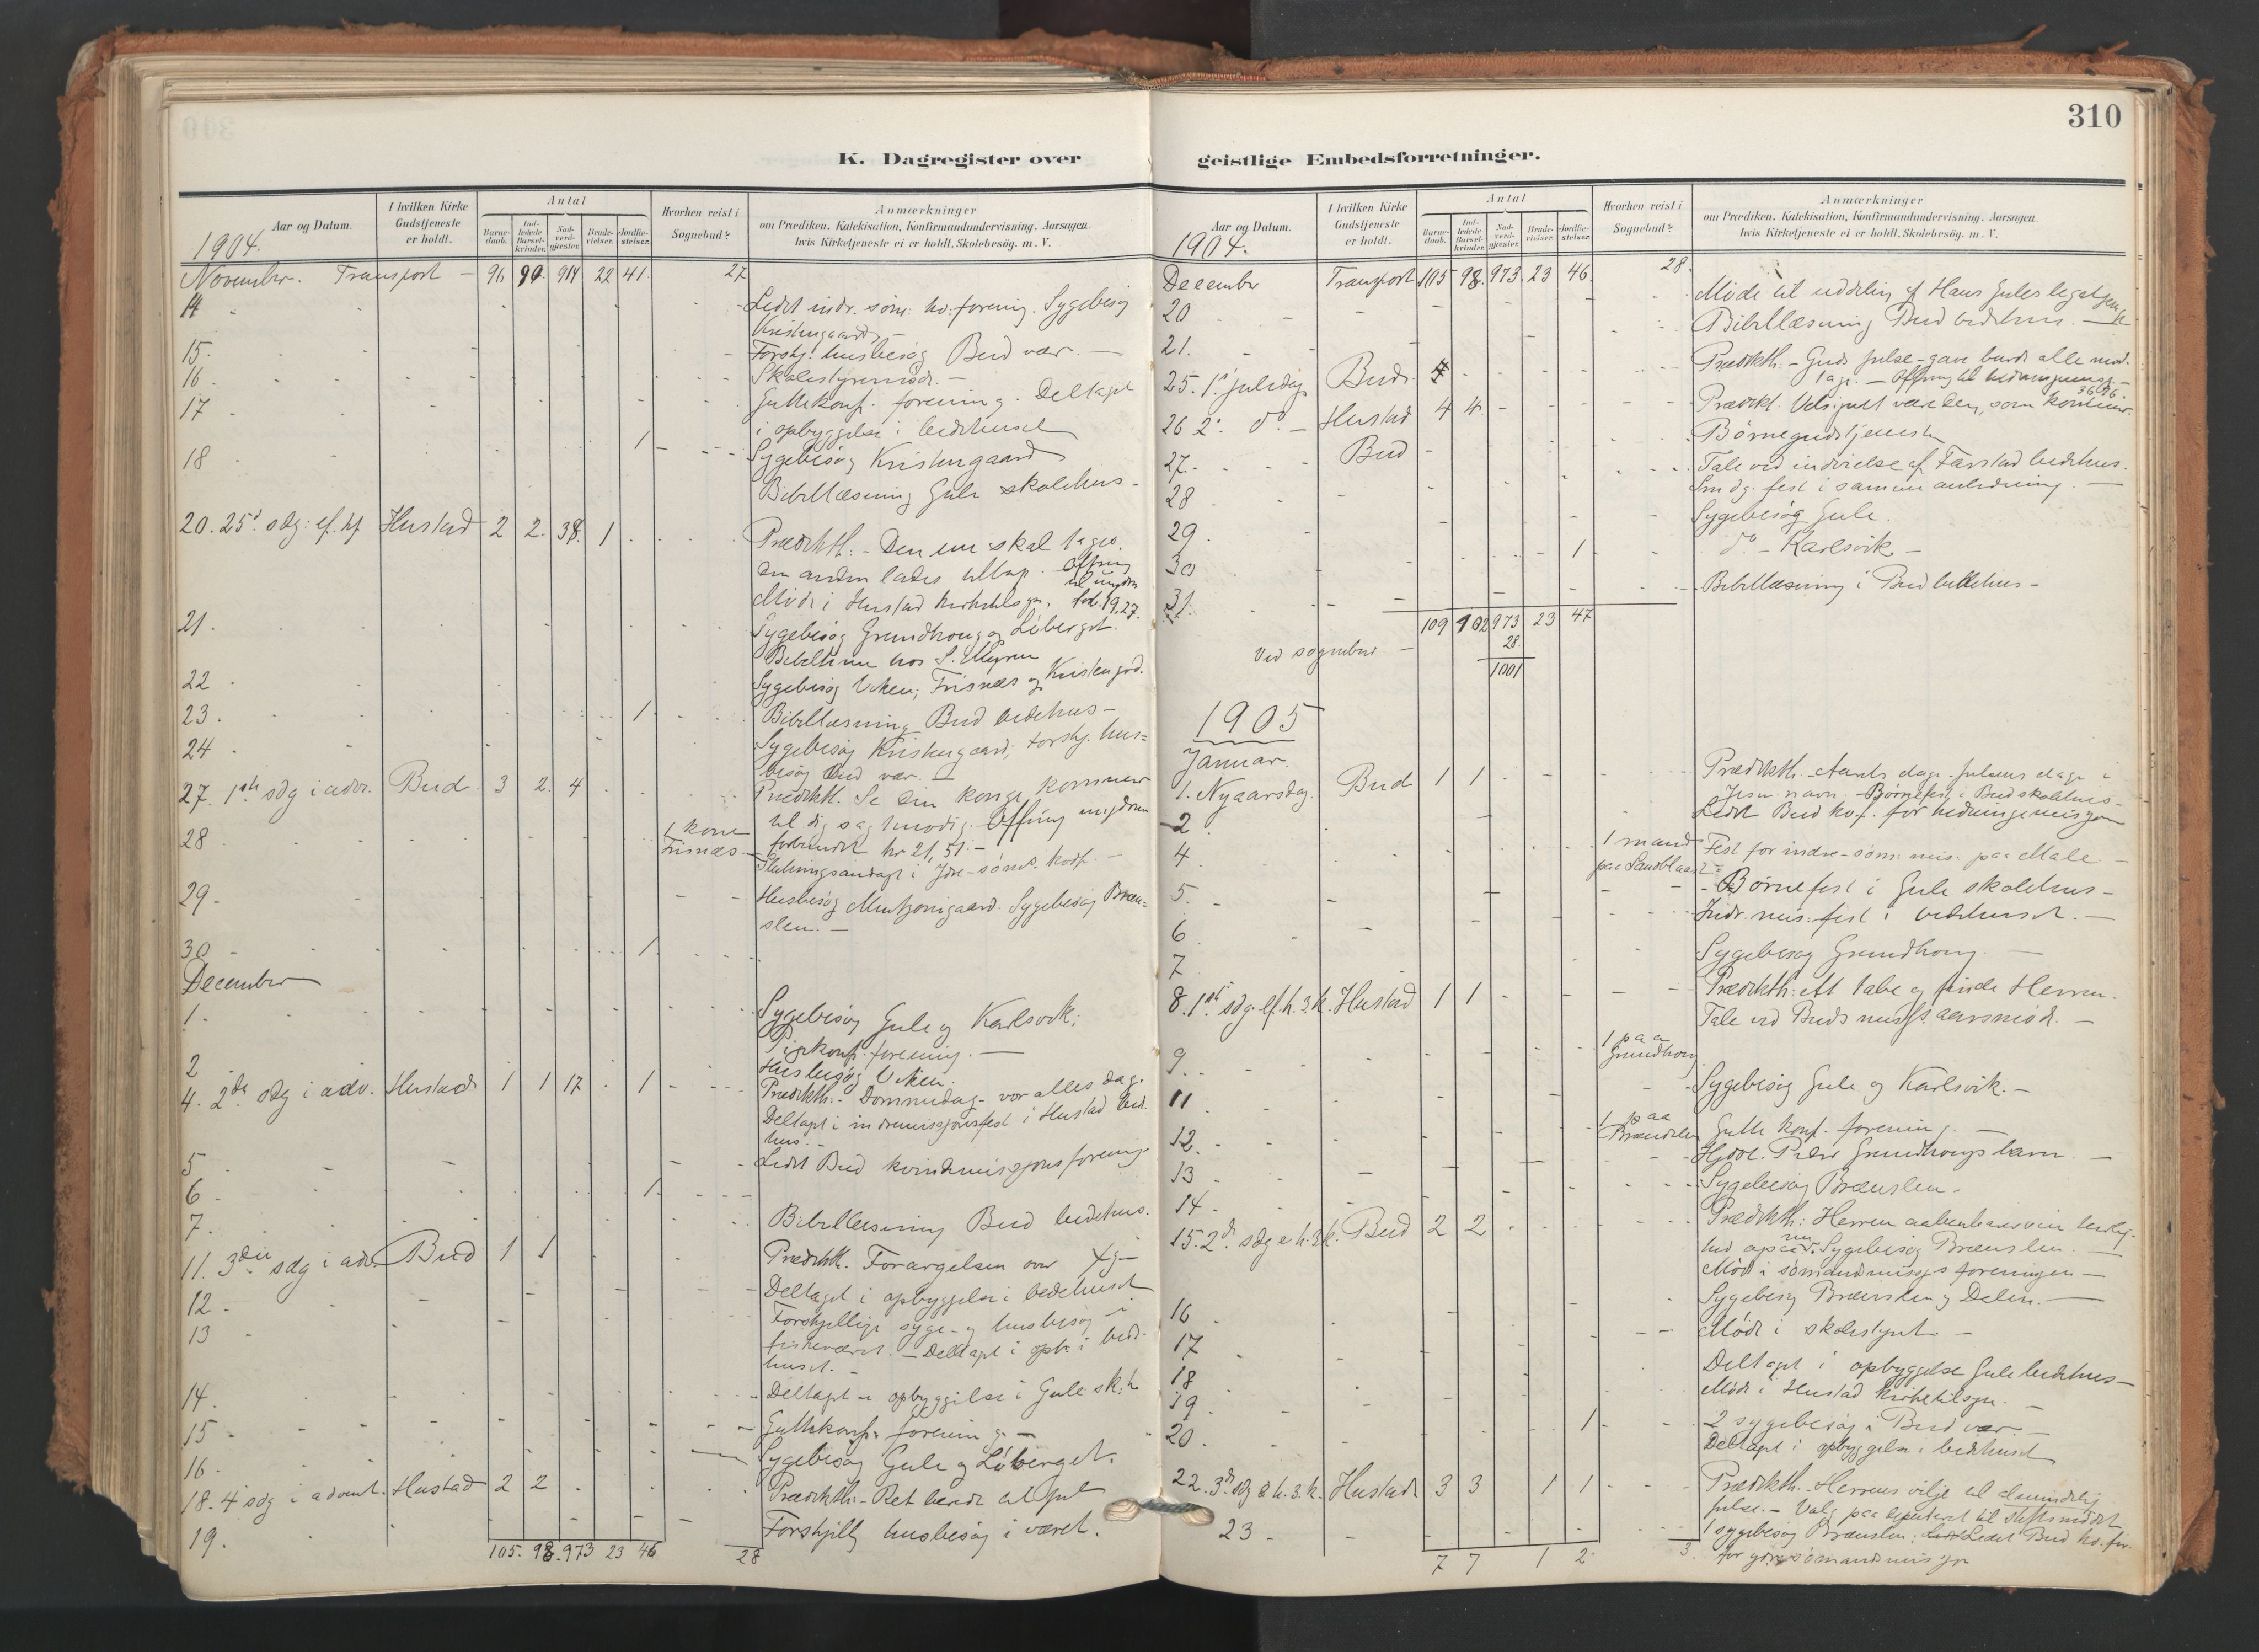 310
K. Dagregister over
geistlige Embedsforretninger.
Aar og Datum.
I hvilken Kirke Gudstjeneste er holdt.
Antal
Barne-daab.
Ind-ledede Barsel-kvinder.
Nad-verd-gjester.
Brude-vielser.
Jordfæ-stelser.
Hvorhen reist i Sognebud?
Anmærkninger
om Prædiken, Katekisation, Konfirmandundervisning, Aarsagen
hvis Kirketjeneste ei er holdt, Skolebesög. m. V.
1904.
November. Transport - 96 90 914 22 41. 27
14 Ledet indr. søm: kv. forening. Sygebesøg
Kristengaard
15. Forskj. husbesøg Bud vær. —
16. Skolestyremøde. —
17 Guttekonf. forening. Deltaget
i opbyggelse i bedehuset
18 1 Sygebesøg Kristengaard
Bibellæsning Gule skolehus -
20. 25d. sdg: ef. tf Hustad 2 2. 38. 1 Prædkth. - Den ene skal tages.
den anden lades tilbage. Offring
til ungdom
Møde i Hustad kirketilsyn. 19,27.
21. Sygebesøg Grundhaug og Löberget.
Bibeltime hos S. Myren
22 Sygebesøg Viken, Frisnes og Kristengrd.
23. 1 Bibellæsning Bud bedehus -
24 Sygebesøg Kristengaard; forskj. hus=
besøg Bud vær. —
27. 1ste sdg i adv. Bud. 3 2. 4 Prædkth. Se din konge kommer
til dig sagtmodig. Offring ungdom
forbundet kr 21,51. -
28 1 kone
Frisnæs
29 - Husbesøg Sygebesøg Bræn=
slen. —
30 1
December
1. Sygebesøg Gule og Karlsvik;
Pigekonf. forening. —
2 Husbesøg Viken.
4. 2de sdg i adv. Hustad 1 1 17 1 Prædkth: - Dommedag - vor alles dag.
Deltaget i indremissjonsfest i Hustad bed.
hus. -
5 Ledet Bud kvindemissjonsforening.
6 1.
7. Bibellæsning Bud bedehus.
11. 3die sdg i adv. Bud 1 1 Prædkth. Forargelsen over
12. Deltaget i opbyggelse i bedehuset
13 Forskjellige syge- og husbesøg i
fiskeværet. - Deltaget i opb. i bede-
huset. -
14. Deltaget i opbyggelse i Gule sk.h.
15 Guttekonf. forening. -
16. Sygebesøg Gule og Löberget.
18. 4 sdg i advent. Hustad 2 2 Prædkth: - Ret beredt til jul
19. Forskjellig husbesøg i været.
105. 98. 973 23 46 28
Aar og Datum.
I hvilken Kirke Gudstjeneste er holdt.
Antal
Barne-daab.
Ind-ledede Barsel-kvinder.
Nad-verd-gjester.
Brude-vielser.
Jordfæ-stelser.
Hvorhen reist i Sognebud?
Anmærkninger
om Prædiken, Katekisation, Konfirmandundervisning, Aarsagen
hvis Kirketjeneste ei er holdt, Skolebesög. m. V.
1904.
December Transport 105 98. 973 23 46. 28.
20 Møde til uddeling af Hans Gules legat
21. Bibellæsning Bud bedehus. —
25. 1ste juledag Bud. 4 Prædkth. - Guds jule-gave burde alle mod-
tage. -
26 2. do. - Hustad 4 4. Prædkt. Velsignet være den, som kommer.
27. Bud Børnegudstjeneste
28 Tale ved indvielse af Farstad bedehus.
Søndg. fest i samme anledning. —
29. Sygebesøg Gule.
30 1 do - Karlsvik -
31. Bibellæsning i Bud bedehus -
109 102 973 23 47
Ved sognebud - 28.
1001
1905
Januar.
1. Nyaarsdag. Bud 1 1 Prædkth. - Aarets dage - julens dage i
Jesu navn. - Børnefest i Bud skolehus -
2 Ledet Bud kv.f. for hedningemisjon
4 1 mand
paa Sandblaast
Fest for indre-søm: mis. paa Male -
5. Børnefest i Gule skolehus -
6 Indr. mis. fest i bedehuset. —
7 Sygebesøg Grundhaug. —
8. 1ste sdg. ef. h. 3. k. Hustad 1 1 Prædkth: At tabe og finde Herren.
Tale ved Buds aarsmøde. —
9. 1 paa
Grundhaug
11 Sygebesøg Gule og Karlsvik. -
12. 1 paa
Brændslen
Gutte konf. forening. —
13 Hjdøbt. Peder Grundhaugs barn. —
14. Sygebesøg Brænslen -
15. 2de sdg e. h. 3k. Bud 2 2 Prædkth: Herren aabenbarer sin herlig-
hed Sygebesøg Brænslen. —
Møde i sømandsmissjs foreningen -
16 Sygebesøg Brænslen og Delin. —
17 Møde i skolestyret -
18 Deltaget i opbyggelse Gule bedehus -
19 Møde i Hustad kirketilsyn. -
20. 1 2 sygebesøg i Bud vær. -
Deltaget i opbyggelse i bedehuset
22. 3de sdg e h. 3. k. Hustad 3 3 1 1 Prædkth. - Herrens vilje til almindelig
julse. - Valg paa deputeret til stiftsmødet
23 - 1 sygebesøg Brænslen. Ledet Bud kv. for.
for sømandsmisjon
7 7 1 2. 3.